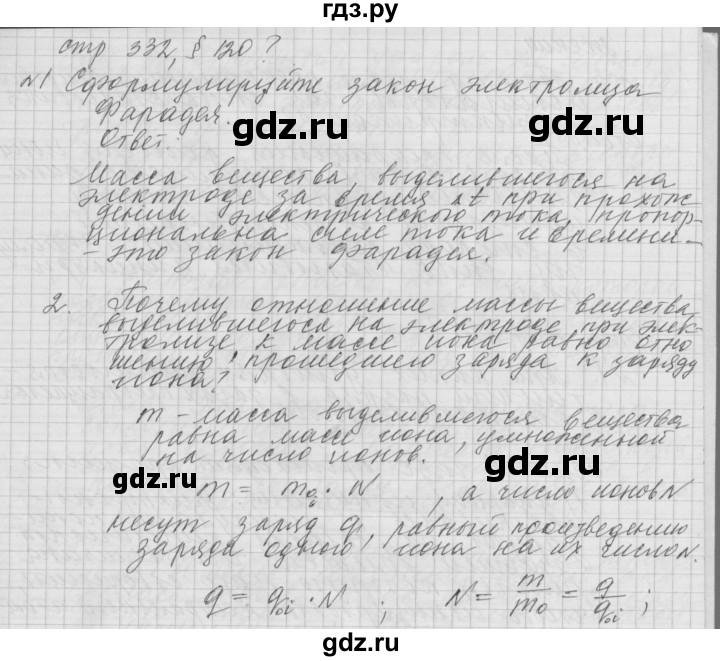 гдз.ру
стр 332, § 120?
№1 Сформулируйте закон электролиза
Фарадея.
Ответ:
gdz.ru gdz.ru
Масса вещества, выделившегося на
электроде за время Δt при прохож-
дении электрического тока, пропор-
циональна силе тока и времени -
- это закон Фарадея.
gdz.ru gdz.ru
2. Почему отношение массы вещества,
выделившегося на электроде при элек-
тролизе к массе иона равно отно-
шению прошедшего заряда к заряду
иона?
gdz.ru gdz.ru
m - масса выделившегося вещества
равна массе иона, умноженной
на число ионов.
gdz.ru gdz.ru
m = m₀ᵢ · N , а число ионов N
несут заряд q, равный произведению
заряда одного иона на их число N.
q = q₀ᵢ · N ; N = m/m₀ = q/q₀ᵢ ;
gdz.ru gdz.ru